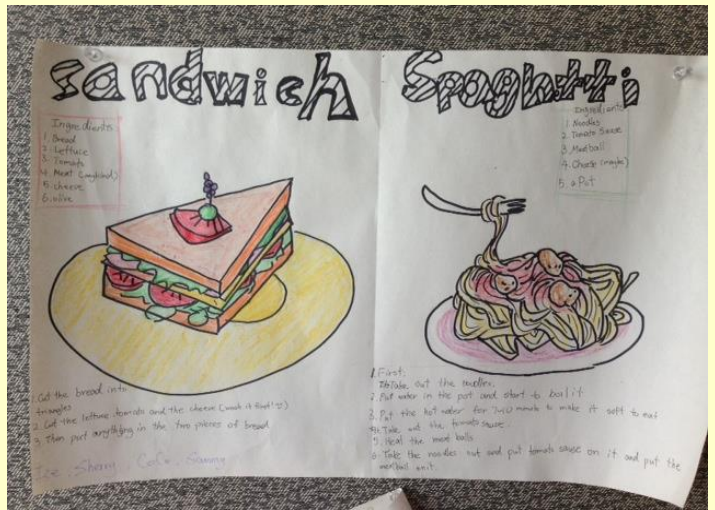 Sandwich
Ingredients:
1. Bread
2. Lettuce
3. Tomato
4. Meat (any kind)
5. cheese
6. olive
1. Cut the bread into
triangles
2. Cut the lettuce tomato and the cheese (wash it first!)
3. Then put anything in the two pieces of bread
Ice, Sherry, CoCo, Sammy
Spaghtti
Ingredients
1. Noodles
2. Tomato Sauce
3. Meatball
4. Cheese (maybe)
5. a Pot
1. First:
Take out the noodles.
2. Put water in the pot and start to boil it
3. Put the hot water for 7-10 minute to make it soft to eat
4. Take out the tomato sauce
5. Heat the meat balls
6. Take the noodles out and put tomato sause on it and put the
meatball on it.